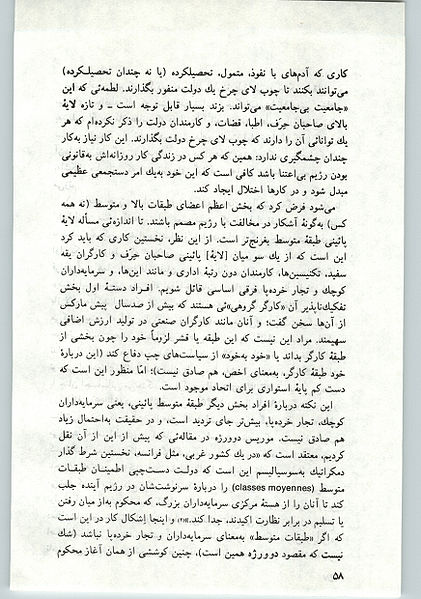 کاری که آدم‌های با نفوذ، متمول، تحصیلکرده (یا نه چندان تحصیلکرده)
می‌توانند بکنند تا چوب لای چرخ یک دولت منفور بگذارند. لطمه‌ئی که این
«جامعیت بی‌جامعیت» می‌تواند. بزند بسیار قابل توجه است ــ و تازه لایهٔ
بالای صاحبان حِرَف، اطباء، قضات، و کارمندان دولت را ذکر نکرده‌ام که هر
یك توانائی آن را دارند که چوب لای چرخ دولت بگذارند. این کار نیاز به‌کار
چندان چشمگیری ندارد: همین که هر کس در زندگی کار روزانه‌اش به‌قانونی
بودن رژیم بی‌اعتنا باشد کافی است که این خود به‌یك امر دستجمعی عظیمی
مبدل شود و در کارها اختلال ایجاد کند.
می‌شود فرض کرد که بخش اعظم اعضای طبقات بالا و متوسط (نه همه
کس) به‌گونهٔ آشکار در مخالفت با رژیم مصمم باشند. تا اندازه‌ئی مسأله لایهٔ
پائینی طبقهٔ متوسط بغرنج‌تر است. از این نظر، نخستین کاری که باید کرد
این است که از یك سو میان [لایهٔ] پائینی صاحبان حِرَف و کارگران یقه
سفید، تکنیسین‌ها، کارمندان دون رتبهٔ اداری و مانند این‌ها، و سرمایه‌داران
کوچك و تجار خرده‌پا فرقی اساسی قائل شویم. افراد دستهٔ اول بخش
تفکیك‌ناپذیر آن «کارگر گروهی»ئی هستند که بیش از صدسال پیش مارکس
از آن‌ها سخن گفت؛ و آنان مانند کارگران صنعتی در تولید ارزش اضافی
سهیمند. مراد این نیست که این طبقه یا قشر لزوماً خود را چون بخشی از
طبقهٔ کارگر بداند یا «خود به‌خود» از سیاست‌های چپ دفاع کند (این دربارهٔ
خود طبقهٔ کارگر، به‌معنای اخص، هم صادق نیست)؛ امّا منظور این است که
دست کم پایهٔ استواری برای اتحاد موجود است.
این نکته دربارهٔ افراد بخش دیگر طبقهٔ متوسط پائینی، یعنی سرمایه‌داران
کوچك، تجار خرده‌پا، بیش‌تر جای تردید است، و در حقیقت به‌احتمال زیاد
هم صادق نیست. موریس دوورژه در مقاله‌ئی که پیش از این از آن نقل
کردیم، معتقد است که «در یك کشور غربی، مثل فرانسه، نخستین شرط گذار
دمکراتیك به‌سوسیالیسم این است که دولت دست‌چپی اطمینان طبقات
متوسط (classes moyennes) را دربارهٔ سرنوشت‌شان در رژیم آینده جلب
کند تا آنان را از هستهٔ مرکزی سرمایه‌داران بزرگ، که محکوم به‌از میان رفتن
یا تسلیم در برابر نظارت اکیدند، جدا کند.» و اینجا إشکال کار در این است
که اگر «طبقات متوسط» به‌معنای سرمایه‌داران و تجار خرده‌پا نباشد (شك
نیست که مقصود دوورژه همین است)، چنین کوششی از همان آغاز محکوم
۵۸